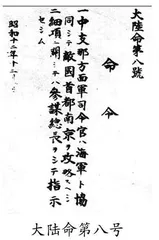 大陸命第八號
命令
一中支那方面軍司令官ハ海軍ト協
同シテ敵國首都南京ヲ攻略スヘシ
二細項ニ關シテハ參謀總長ヲシテ指示
セシム
昭和十二年十二
大陸命第八号